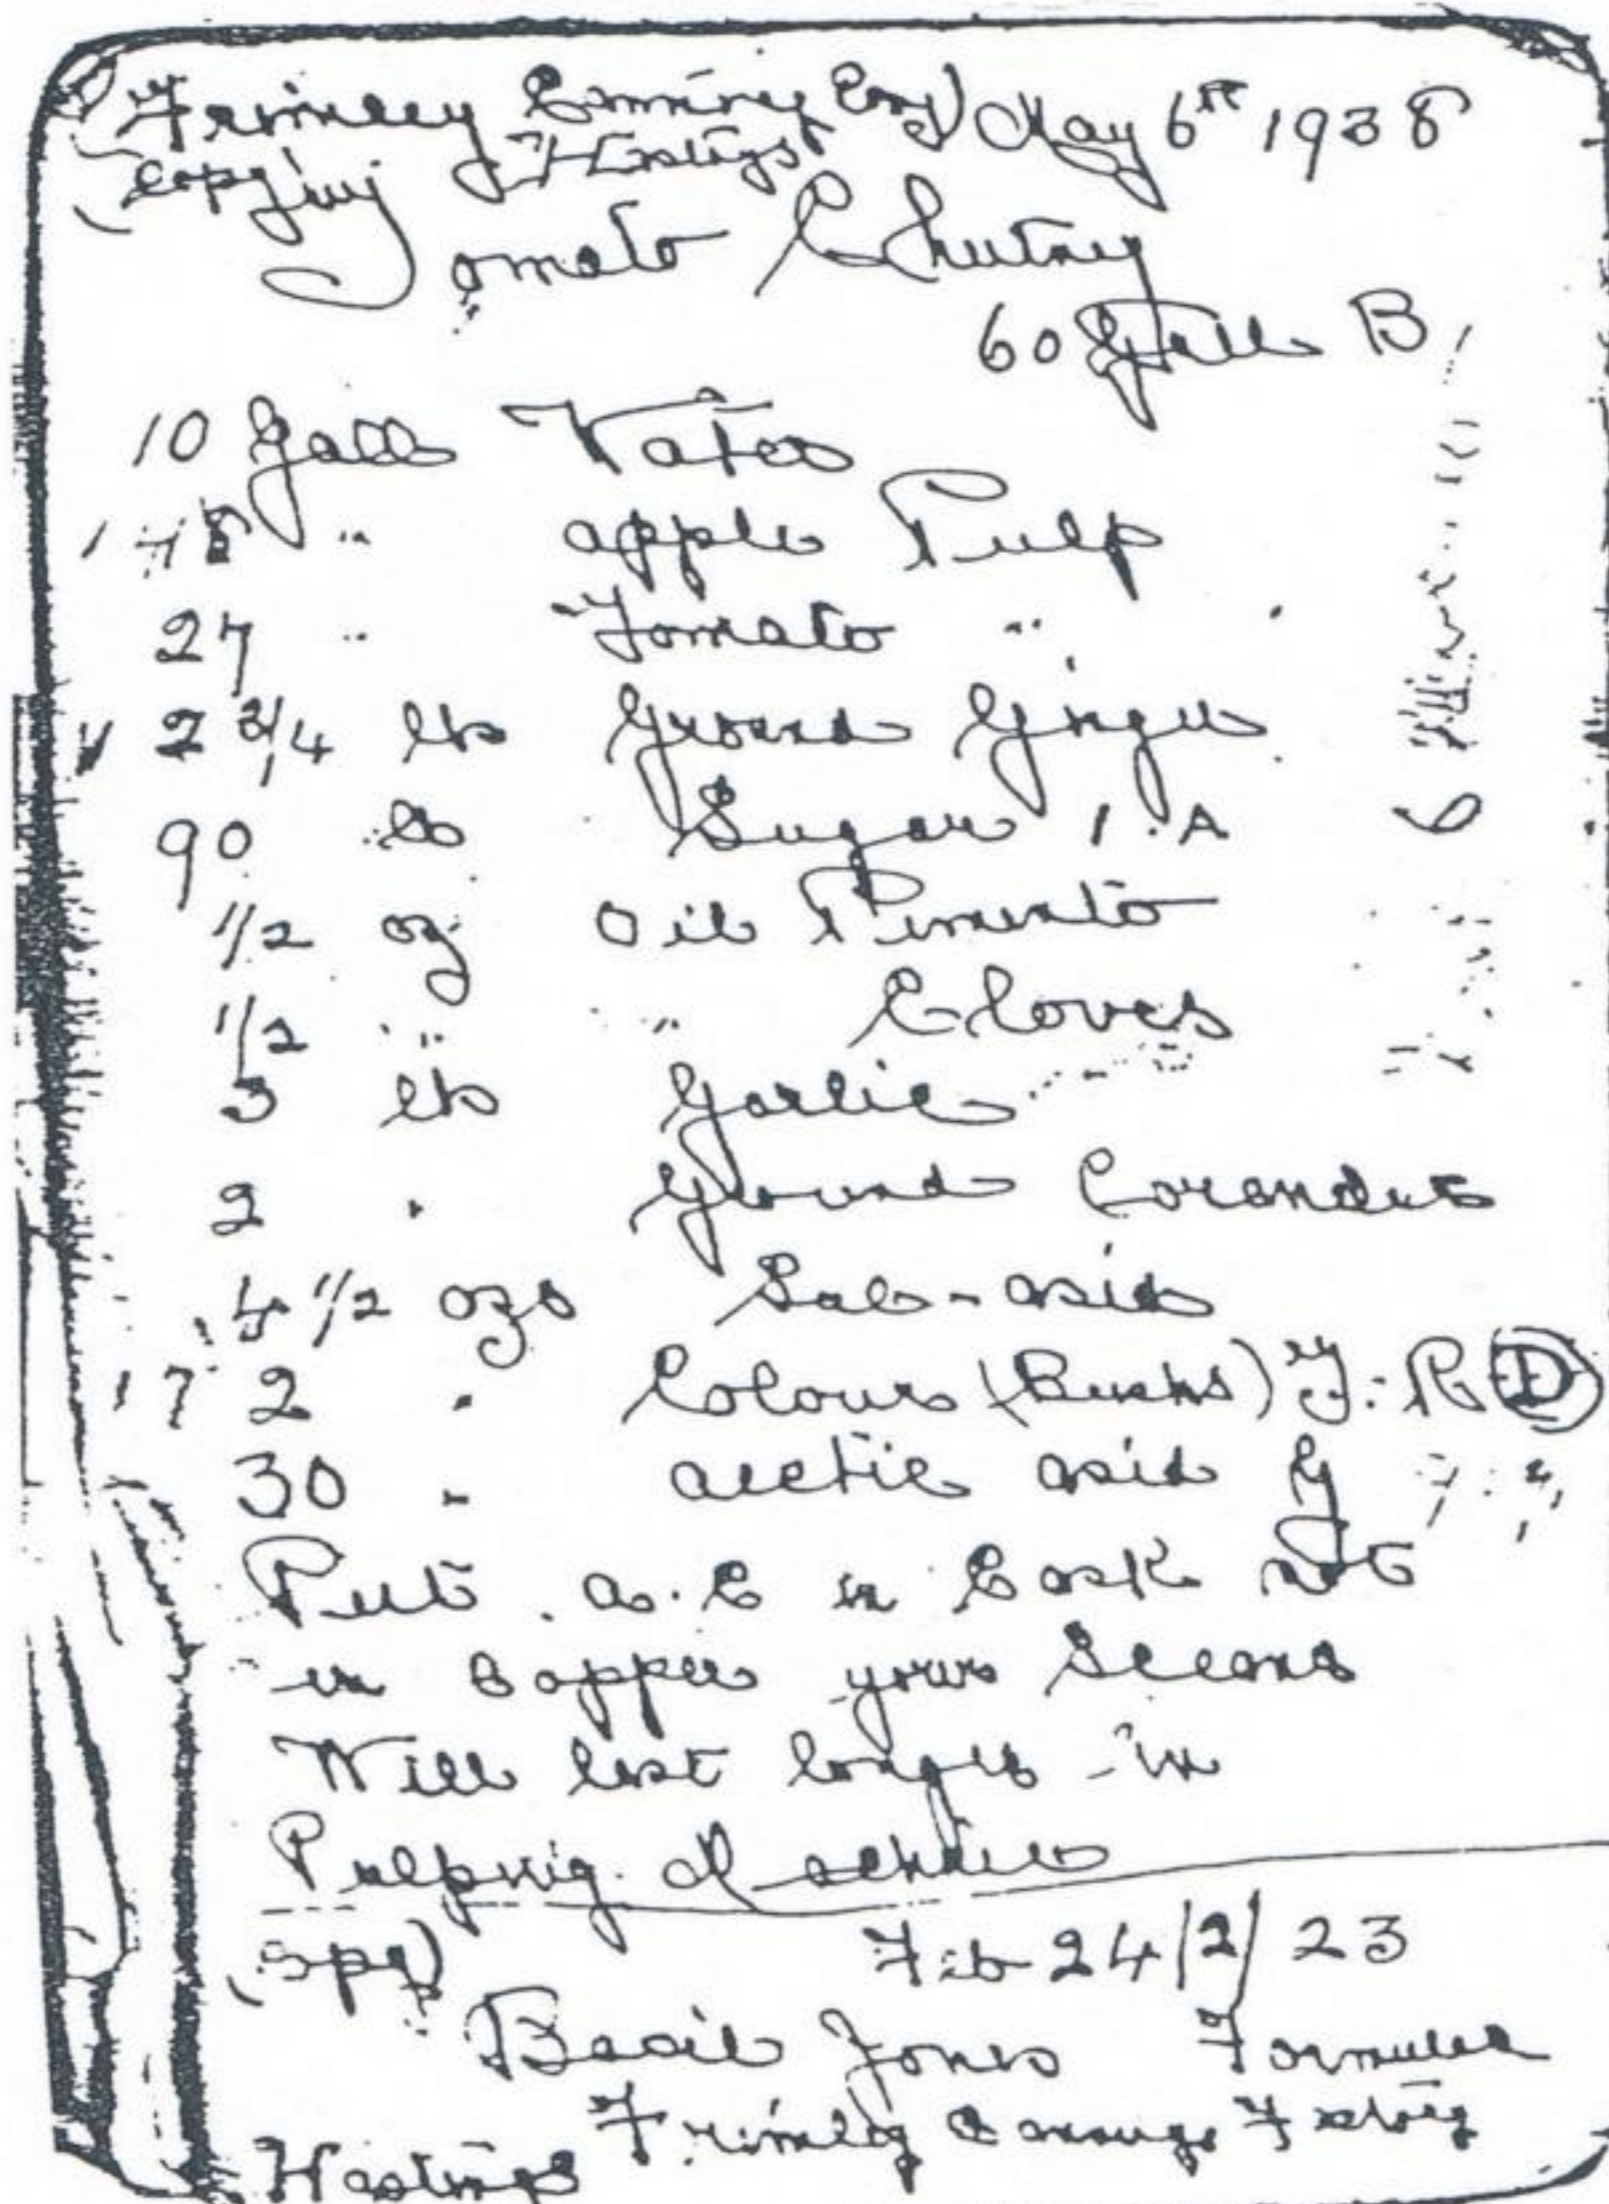 Frimley Canning Coy) May 6th 1938
(Copying Hastings
Tomato Chutney
60 Galls B
10 Galls Water
18 " apple Pulp
27 " Tomato "
2 3/4 lbs Ground Ginger
90 lbs Sugar 1.A
1/2 oz Oil Pimento
1/2 " " Cloves
3 lbs Garlic
2 " Ground Coriander
4 1/2 ozs Sal-asid
2 " Colour (Bush's) Y: R D
30 " acetic asid G
Put a.C in Cask not
in Copper your
Will last longer - in
Pulping Machine
(Spq) Feb 24/2/23
Basil Jones Formula
Frimley Canning Factory
Hastings